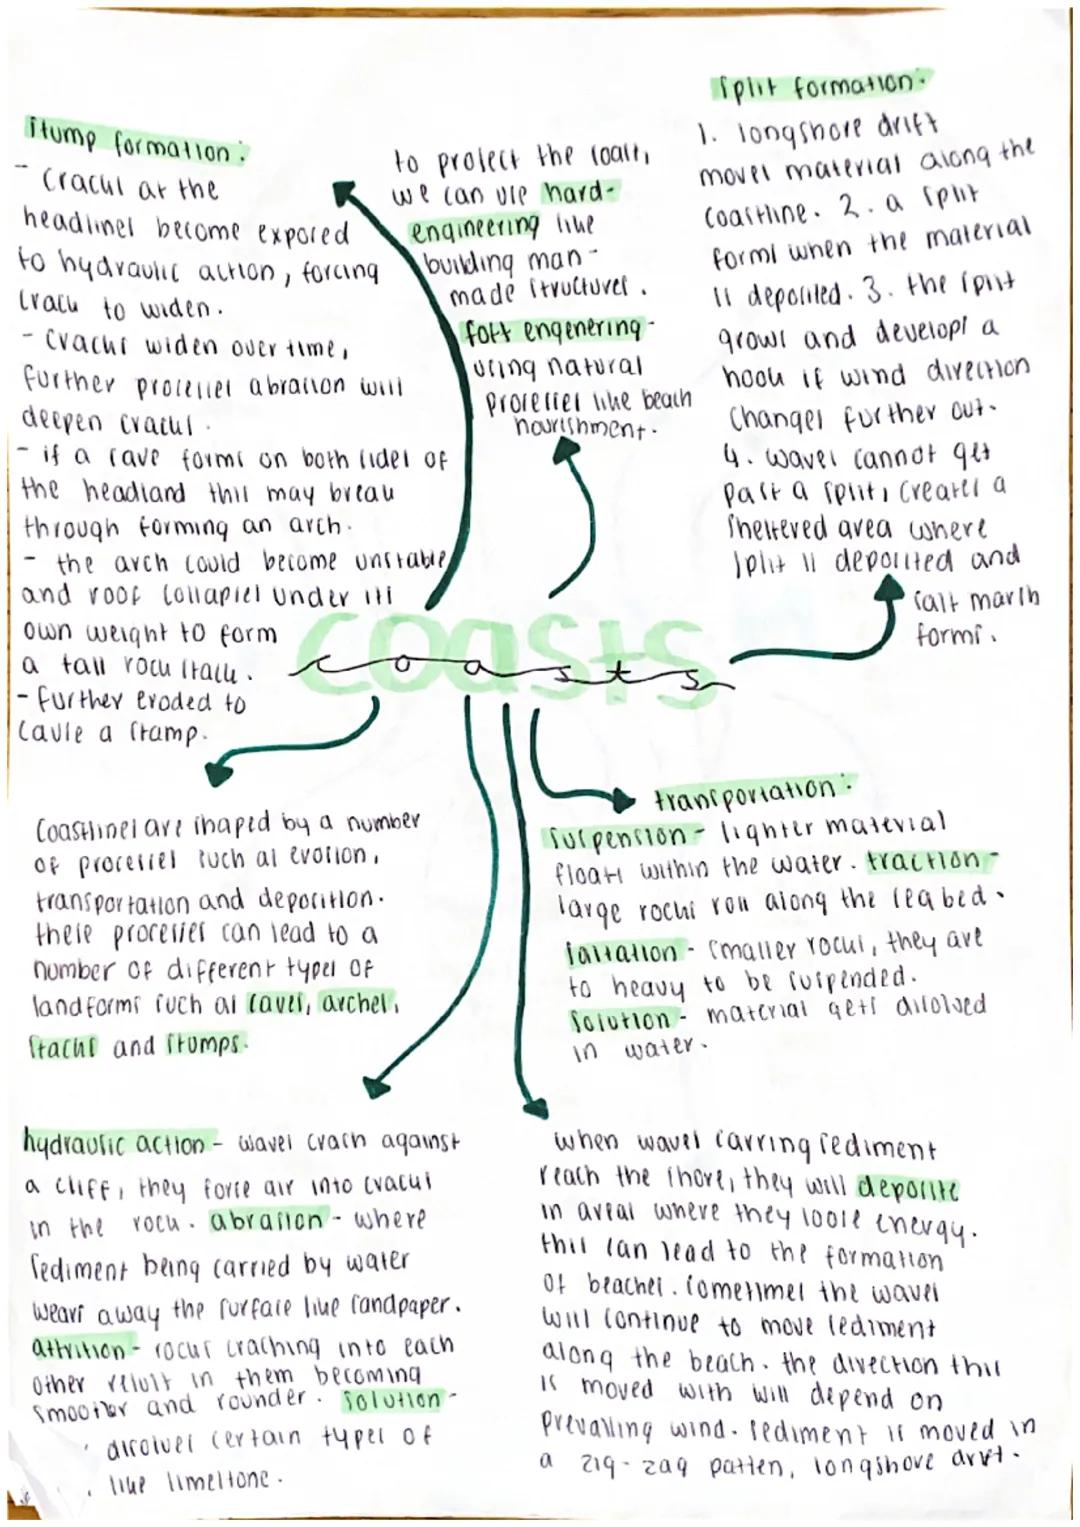 Stump formation:
- Cracks at the
headlines become exposed
to hydraulic action, forcing
crack to widen.
- Cracks widen over time,
further processes abrasion will
deepen cracks.
- if a cave forms on both sides of
the headland this may break
through forming an arch.
- the arch could become unstable
and roof collapses under its
own weight to form
a tall rock stack.
- further eroded to
cause a stamp.
to protect the coast,
we can use hard-
engineering like
building man-
made structures.
soft engenering-
using natural
processes like beach
nourishment.
Split formation:
1. longshore drift
moves material along the
coastline. 2. a split
forms when the material
is deposited. 3. the split
grows and develops a
hook if wind direction
changes further out.
4. waves cannot get
past a split, creates a
sheltered area where
split is deposited and
salt marsh
forms.
coasts
coasts
Coastlines are shaped by a number
of processes such as erosion,
transportation and deposition.
these processes can lead to a
number of different types of
landforms such as caves, arches,
stacks and stumps.
transportation:
Suspension - lighter material
floats within the water. traction-
large rocks roll along the sea bed.
saltation - smaller rocks, they are
to heavy to be suspended.
Solution - material gets disolved
in water.
hydraulic action - waves crash against
a cliff, they force air into cracks
in the rock. abrasion - where
sediment being carried by water
wears away the surface like sandpaper.
attrition - rocks crashing into each
other result in them becoming
smoother and rounder. Solution -
disolves certain types of
like limestone.
when waves carring sediment
reach the shore, they will deposite
in areas where they loose energy.
this can lead to the formation
of beaches. sometimes the waves
will continue to move sediment
along the beach. the direction this
is moved with will depend on
prevailing wind. sediment is moved in
a zig-zag patten, longshore drift.